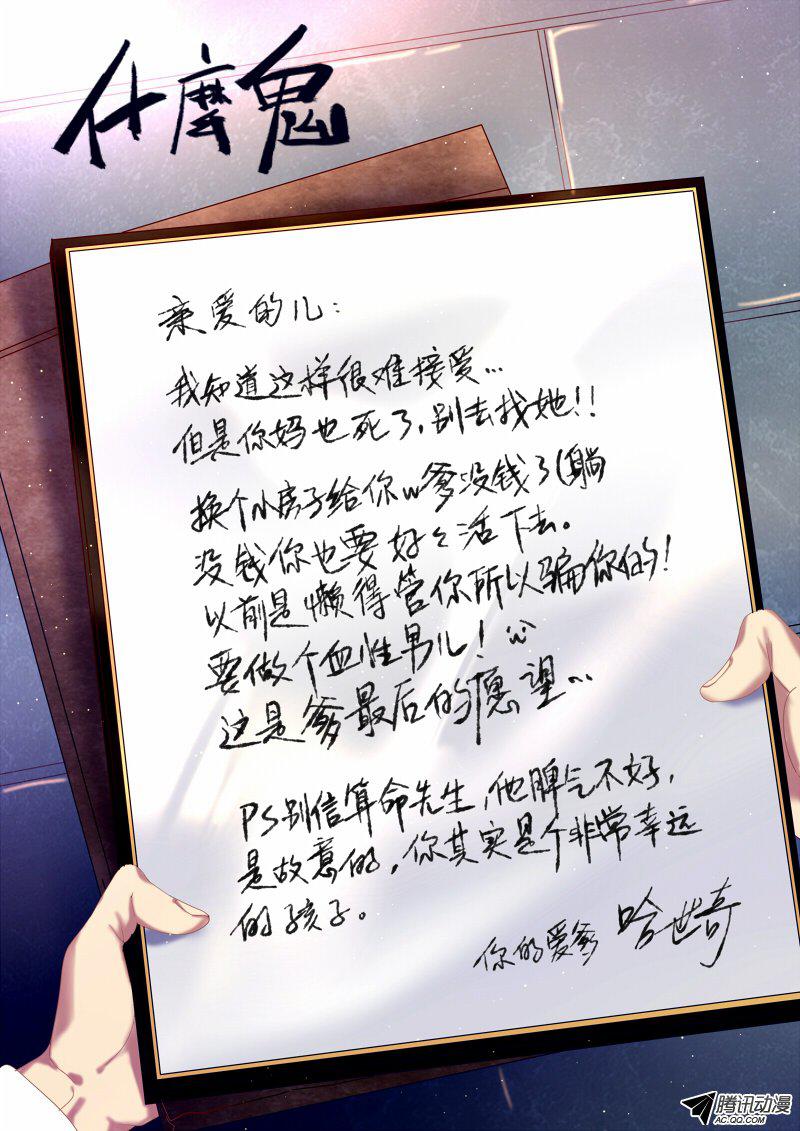 什麼鬼
亲爱的儿：
我知道这样很难接爱…
但是你妈也死了，别去找她！！
换个小房子给你w爹没钱了(躺
没钱你也要好々活下去。
以前是懒得管你所以骗你的！
要做个血性男儿！
这是爹最后的愿望…
PS别信算命先生，他脾气不好，
是故意的，你其实是个非常幸运
的孩子。
你的爱爹 哈世奇
腾讯动漫
AC.QQ.COM